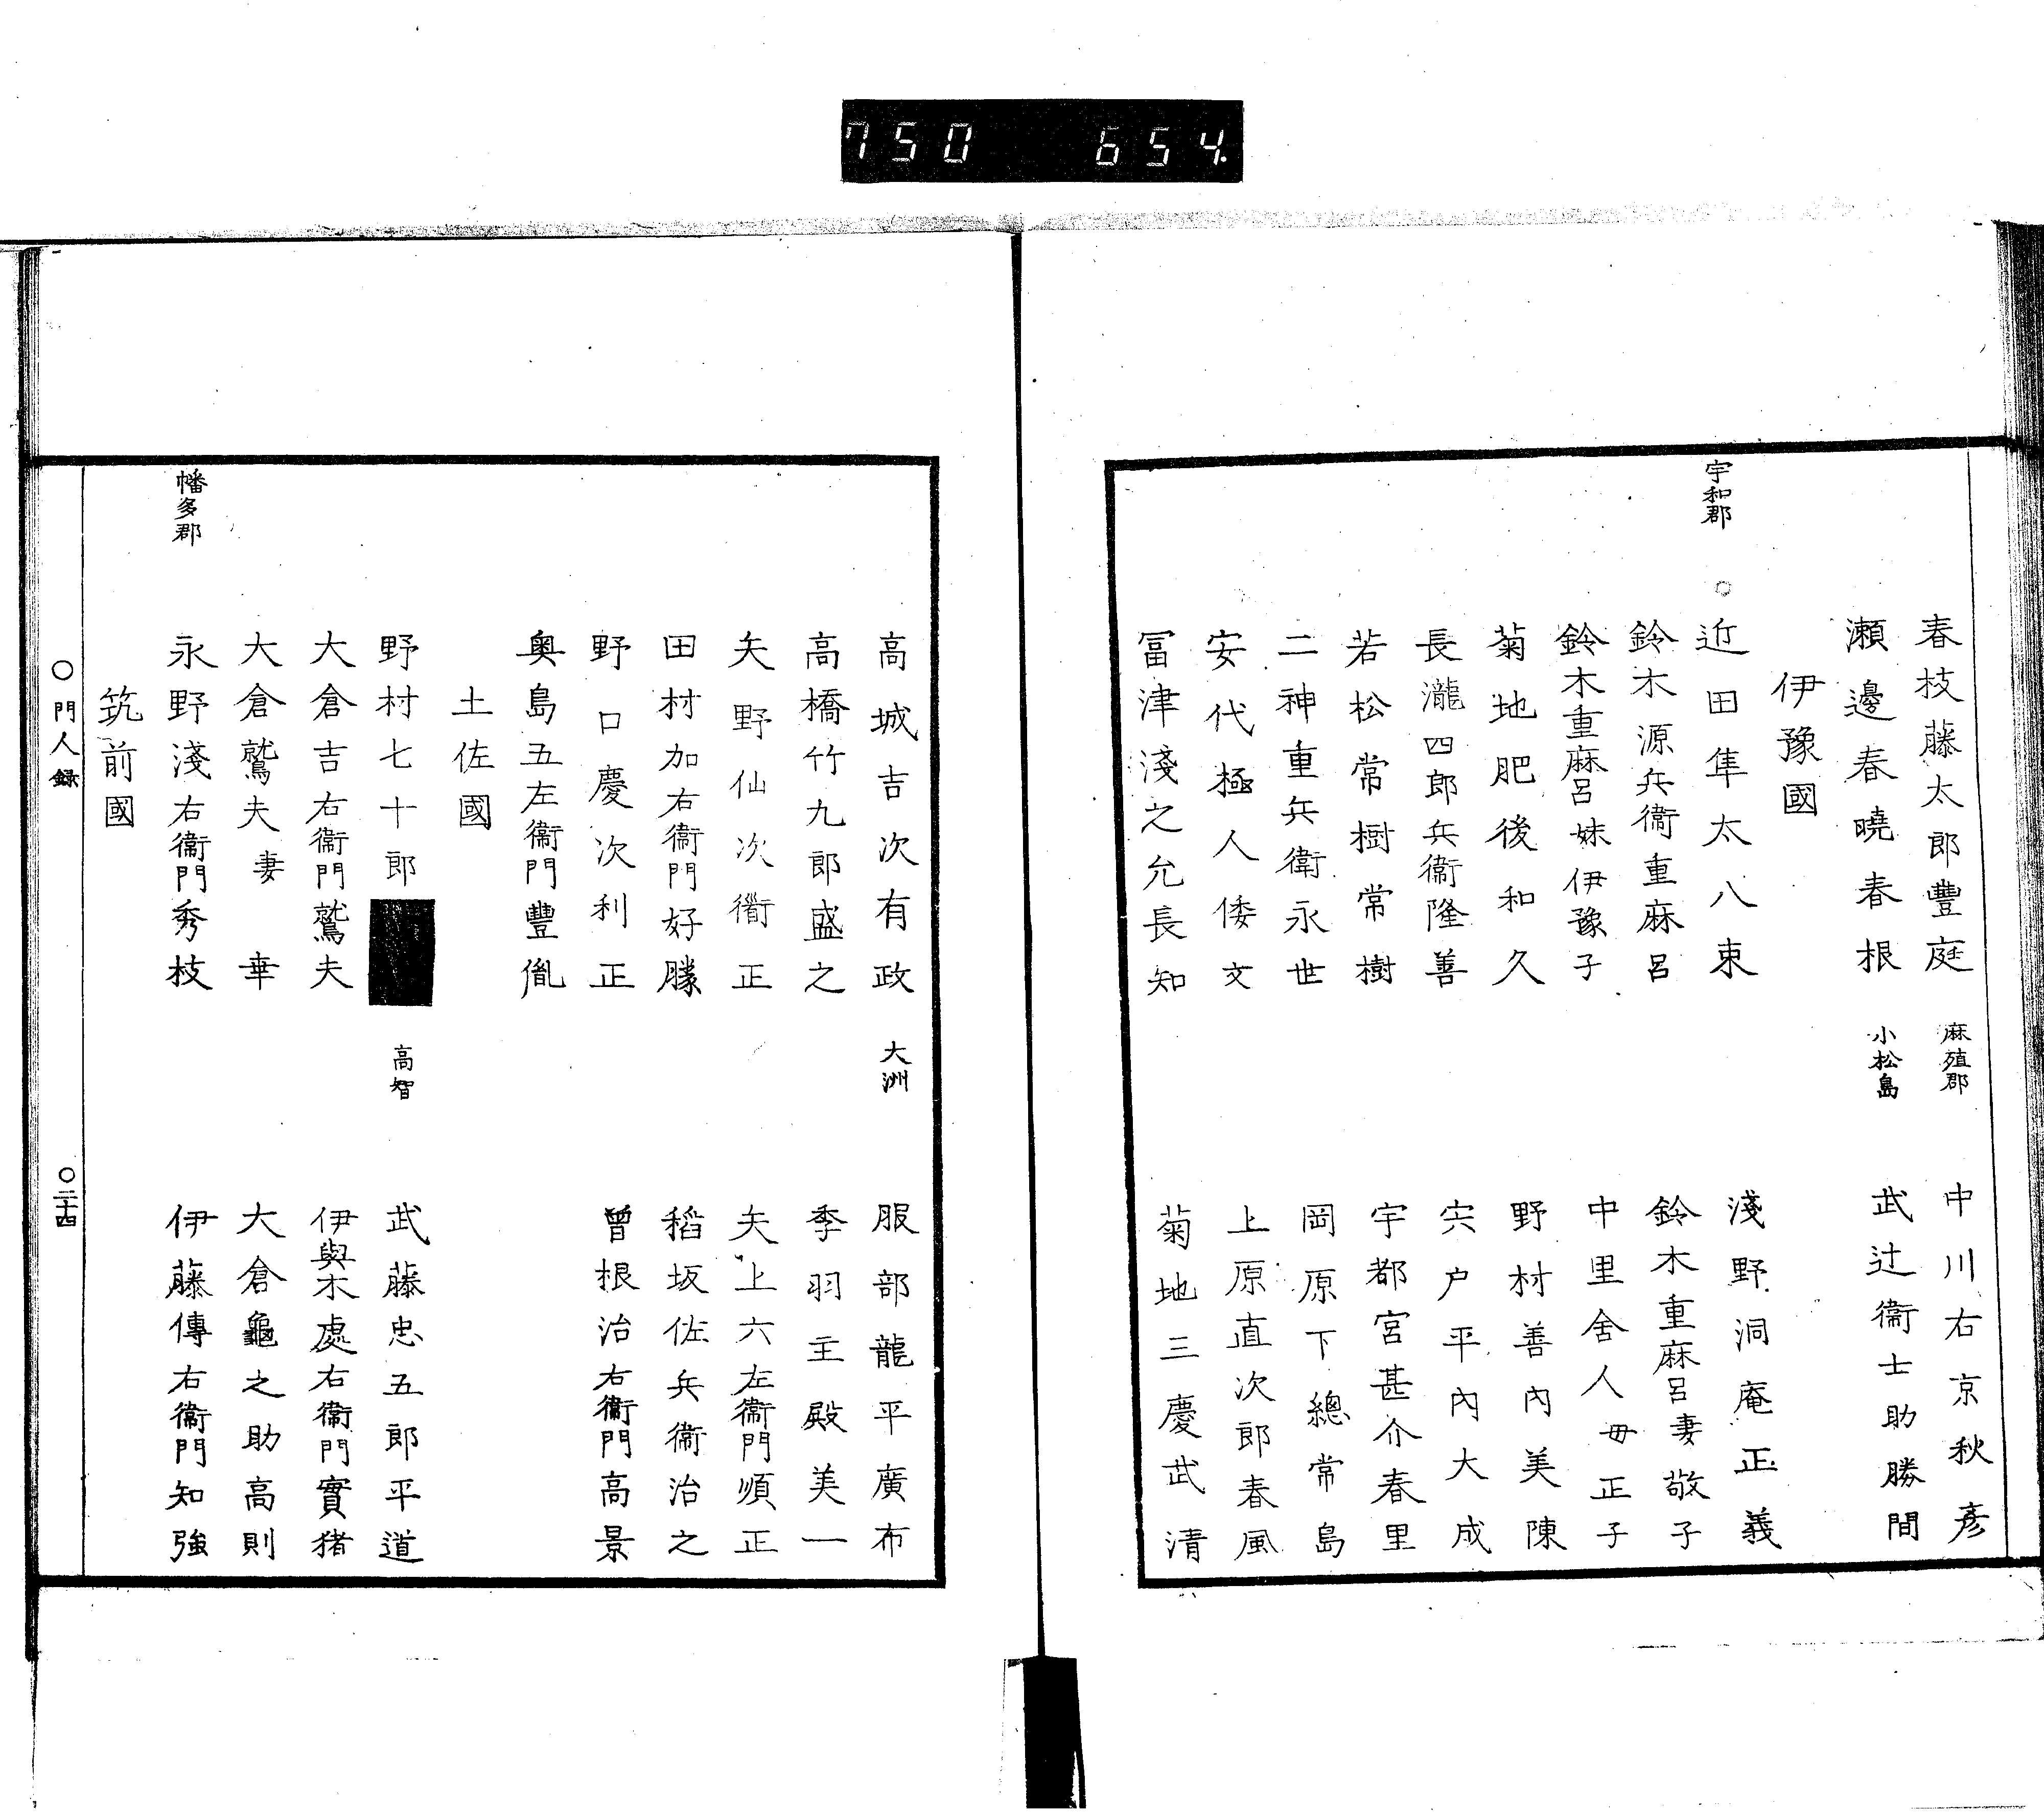 750 654.
春枝藤太郎豐庭 麻殖郡 中川右京秋彦
瀬邊春曉春根 小松島 武辻衞士助勝間
伊豫國
宇和郡 ○近田隼太八束 淺野洞庵正義
鈴木源兵衞重麻呂 鈴木重麻呂妻敬子
鈴木重麻呂妹伊豫子 中里舍人毋正子
菊地肥後和久 野村善内美陳
長瀧四郎兵衞隆善 宍户平内大成
若松常樹常樹 宇都宮甚介春里
二神重兵衛永世 岡原下總常島
安代極人倭文 上原直次郎春風
冨津淺之允長知 菊地三慶武清
高城吉次有政 大洲 服部龍平廣布
高橋竹九郎盛之 季羽主殿美一
矢野仙次衞正 矢上六左衞門順正
田村加右衞門好勝 稻坂佐兵衞治之
野口慶次利正 曾根治右衞門高景
奥島五左衞門豐胤
土佐國
野村七十郎 高智 武藤忠五郎平道
大倉吉右衞門鷲夫 伊與木處右衞門實猪
大倉鷲夫妻 大倉龜之助高則
幡多郡 永野淺右衞門秀枝 伊藤傳右衞門知強
筑前國
○門人録 ○二十四